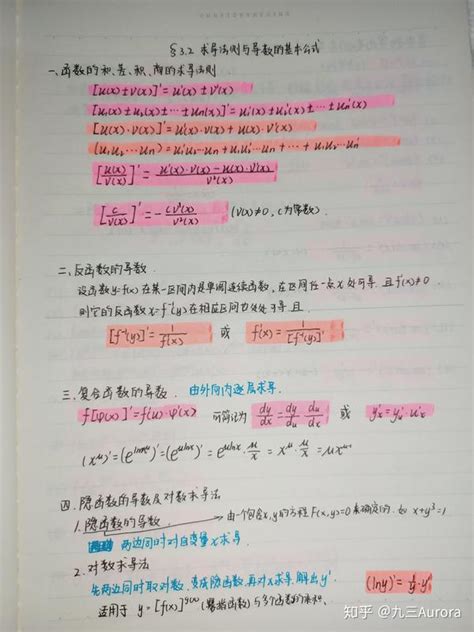 §3.2 求导法则与导数的基本公式
一、函数的和、差、积、商的求导法则
[u(x)±v(x)]'=u'(x)±v'(x)
[u₁(x)±u₂(x)±…±uₙ(x)]'=u₁'(x)±u₂'(x)±…±uₙ'(x)
[u(x)·v(x)]'=u'(x)·v(x)+u(x)·v'(x)
(u₁u₂…uₙ)'=u₁'u₂…uₙ+u₁u₂'…uₙ+…+u₁u₂…uₙ'
[u(x)/v(x)]'=(u'(x)·v(x)-u(x)·v'(x))/v²(x)
[c/v(x)]'=-cv'(x)/v²(x) (v(x)≠0, c为常数).
二、反函数的导数.
设函数y=f(x)在某一区间内是单调连续函数,在区间任一点x处可导 且f'(x)≠0
则它的反函数x=f⁻¹(y)在相应区间也处处可导且
[f⁻¹(y)]'=1/f'(x) 或 f'(x)=1/[f⁻¹(y)]'
三、复合函数的导数. 由外向内逐层求导.
f[φ(x)]'=f'(u)·φ'(x) 可简记为 dy/dx=dy/du·du/dx 或 y'ₓ=y'ᵤ·u'ₓ
(x^μ)'=(e^{lnx^μ})'=(e^{μlnx})'=e^{μlnx}·μ/x=x^μ·μ/x=μx^{μ-1}
四.隐函数的导数及对数求导法
1.隐函数的导数 由一个包含x,y的方程F(x,y)=0来确定的. 如x+y³=1
两边同时对自变量x求导.
2.对数求导法
先两边同时取对数,变成隐函数,再对x求导,解出y'. (lny)'=1/y·y'
适用于 y=[f(x)]^{g(x)} (幂指函数)与多个函数的
知乎 @九三Aurora